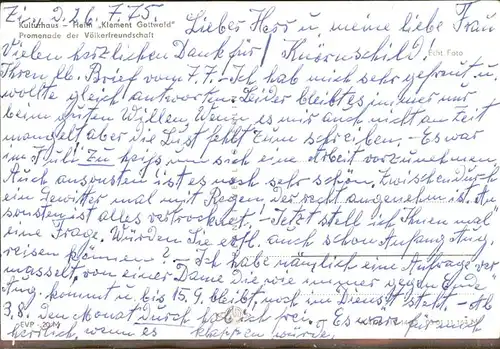 Z., d. 26.7.75.
Kulturhaus – Heim „Klement Gottwald"
Promenade der Völkerfreundschaft
Echt Foto
Lieber Herr u. meine liebe Frau
Knörnschild!
Vielen herzlichen Dank für
Ihren lb. Brief vom 7.7. – Ich hab mich sehr gefreut u.
wollte gleich antworten. Leider bleibt es immer nur
beim guten Willen. Wenn es mir auch nicht an Zeit
mangelt aber die Lust fehlt zum schreiben. – Es war
im Juli zu heiß um sich eine Arbeit vorzunehmen.
Auch ansonsten ist es noch sehr schön. Zwischendurch
ein Gewitter mal mit Regen, der recht angenehm ist. An-
sonsten ist alles vertrocknet. – Jetzt stell ich Ihnen mal
eine Frage. Würden Sie evtl. auch schon Anfang Aug.
reisen können? – Ich habe nämlich eine Aufregung ver-
masselt, von einer Dame die wie immer gegen Ende
Aug. kommt u. bis 15.9. bleibt, noch im Dienst steht. – Ab
3.8. den Monat durch hab ich frei. – Es wäre für mich
herrlich, wenn es klappen würde.
EVP